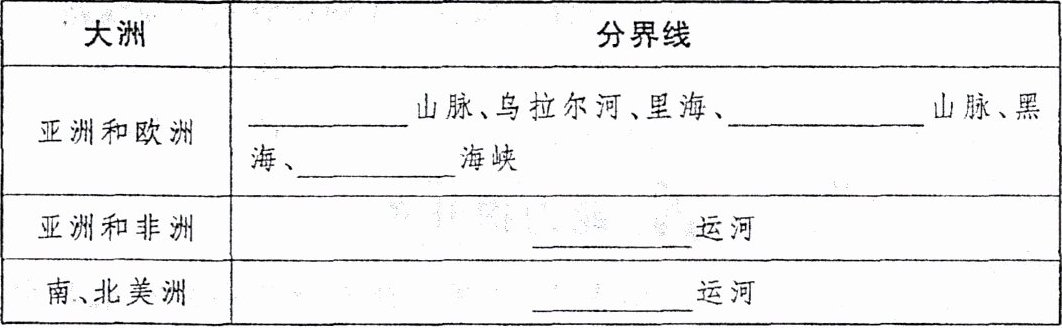 大洲 分界线
亚洲和欧洲 ________山脉、乌拉尔河、里海、________山脉、黑
海、________海峡
亚洲和非洲 ________运河
南、北美洲 ________运河